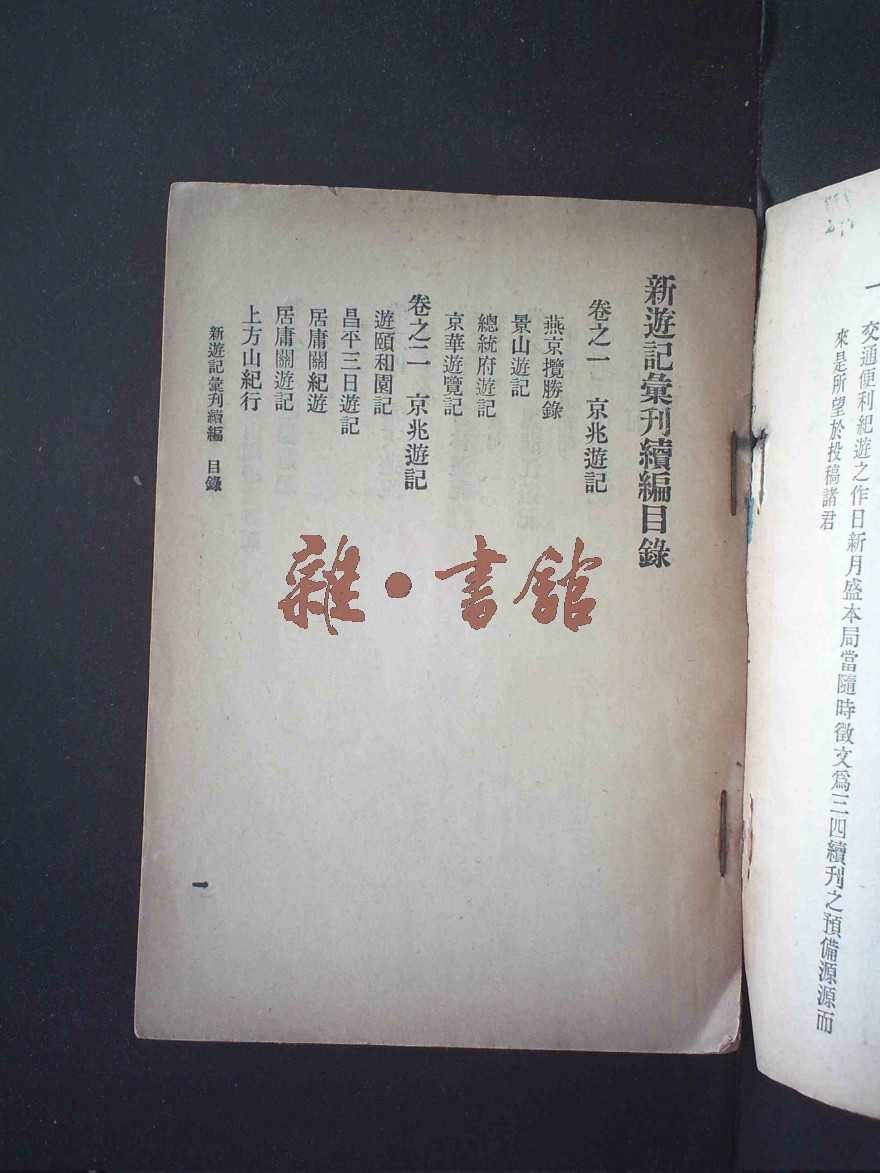 一　交通便利紀遊之作日新月盛本局當隨時徵文爲三四續刊之預備源源而
來是所望於投稿諸君
新遊記彙刊續編目錄
卷之一　京兆遊記
燕京攬勝錄
景山遊記
總統府遊記
京華遊覽記
卷之二　京兆遊記
遊頤和園記
昌平三日遊記
居庸關紀遊
居庸關遊記
上方山紀行
新遊記彙刊續編　目錄
一
雜·書館